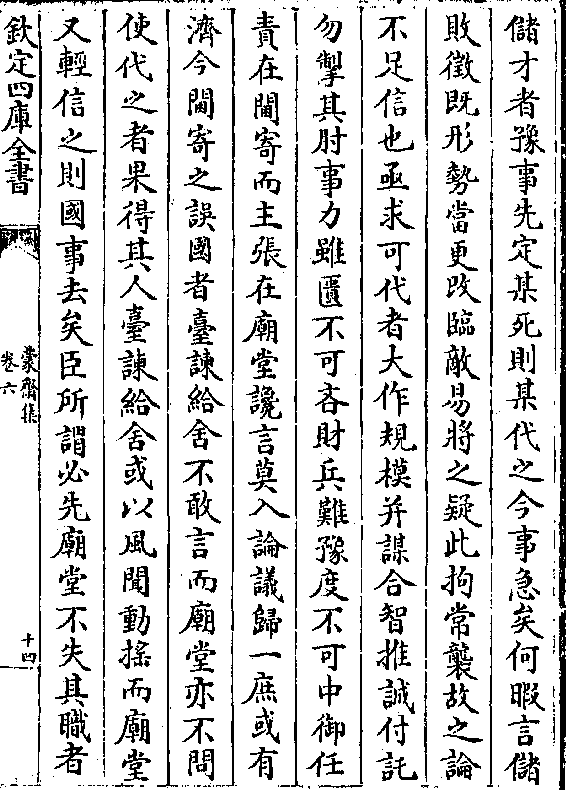 儲才者豫事先定某死則某代之今事急矣何暇言儲
敗徵既形勢當更改臨敵易將之疑此拘常襲故之論
不足信也亟求可代者大作規模并謀合智推誠付託
勿掣其肘事力雖匱不可吝財兵難豫度不可中御任
責在閫寄而主張在廟堂讒言莫入論議歸一庶或有
濟今閫寄之誤國者臺諫給舍不敢言而廟堂亦不問
使代之者果得其人臺諫給舍或以風聞動搖而廟堂
又輕信之則國事去矣臣所謂必先廟堂不失其職者
欽定四庫全書
蒙齋集
卷六
十四